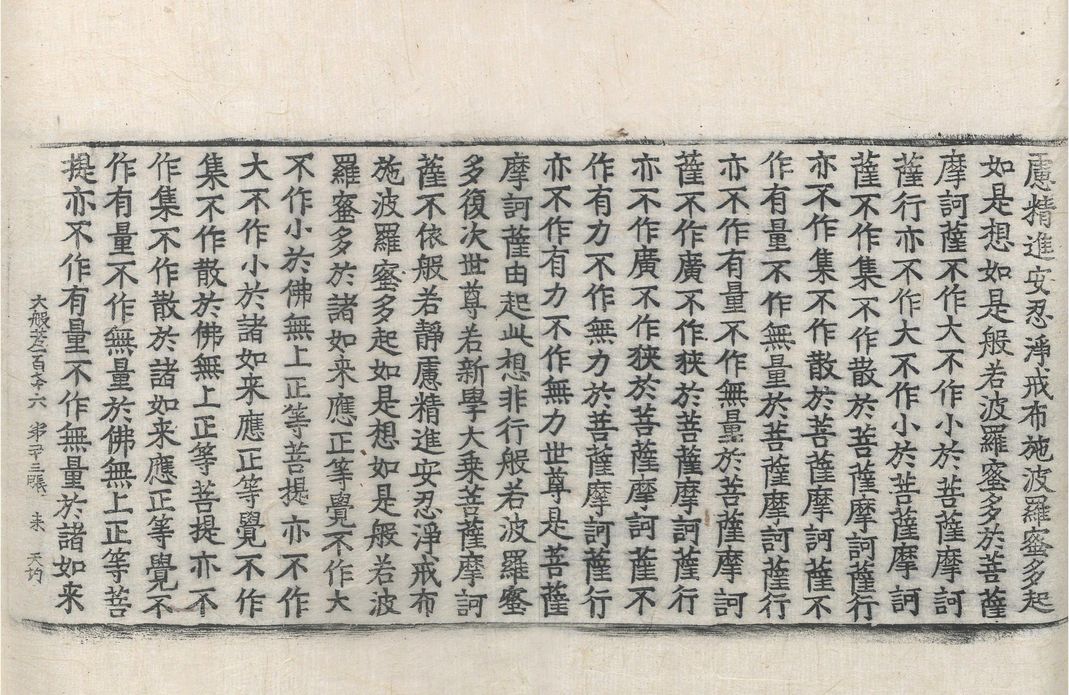 慮精進安忍淨戒布施波羅蜜多起
如是想如是般若波羅蜜多於菩薩
摩訶薩不作大不作小於菩薩摩訶
薩行亦不作大不作小於菩薩摩訶
薩不作集不作散於菩薩摩訶薩行
亦不作集不作散於菩薩摩訶薩不
作有量不作無量於菩薩摩訶薩行
亦不作有量不作無量於菩薩摩訶
薩不作廣不作狹於菩薩摩訶薩行
亦不作廣不作狹於菩薩摩訶薩不
作有力不作無力於菩薩摩訶薩行
亦不作有力不作無力世尊是菩薩
摩訶薩由起此想非行般若波羅蜜
多復次世尊若新學大乗菩薩摩訶
薩不依般若靜慮精進安忍淨戒布
施波羅蜜多起如是想如是般若波
羅蜜多於諸如来應正等覺不作大
不作小於佛無上正等菩提亦不作
大不作小於諸如来應正等覺不作
集不作散於佛無上正等菩提亦不
作集不作散於諸如来應正等覺不
作有量不作無量於佛無上正等菩
提亦不作有量不作無量於諸如来
大般 百 六 三張 来 天